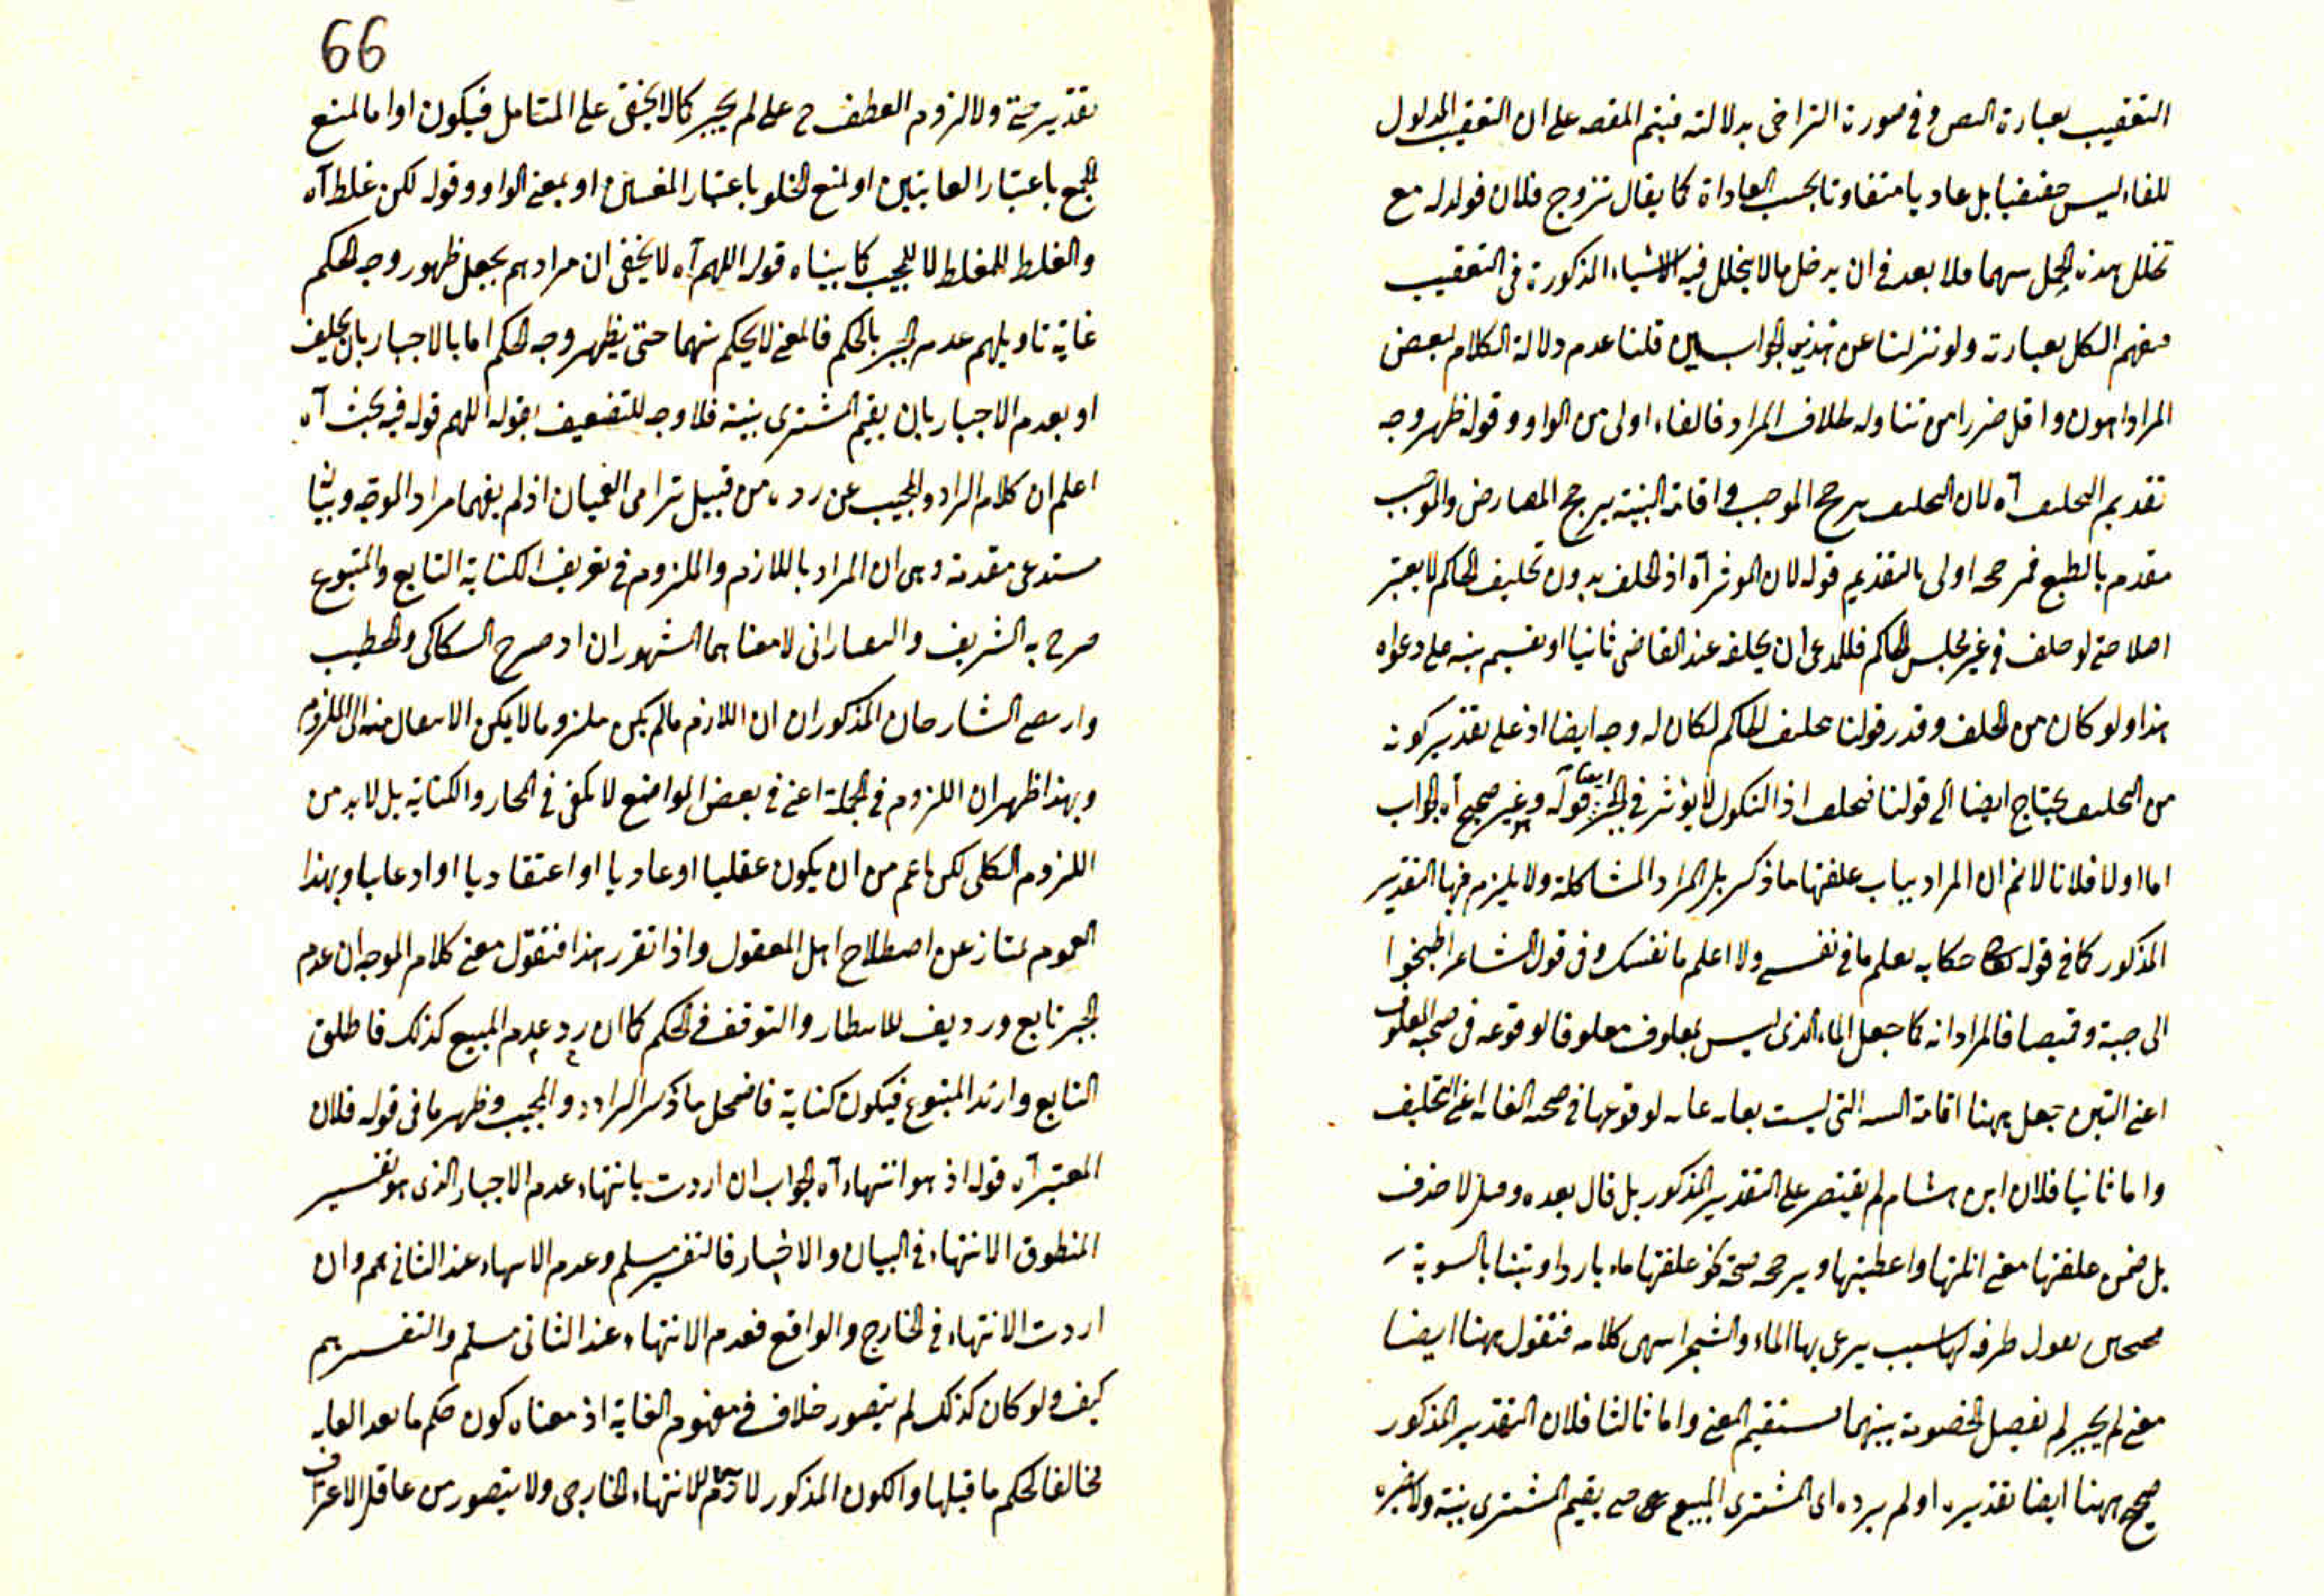 التعقيب بعبارة النص وفى صورة التراخى بدلالته فيتم المقصد على ان التعقيب المدلول
للفاء ليس حقيقيا بل عاديا متفاوتا بحسب العاداة كما يقال تزوج فلان فولد له مع
تخلل هذه الحمل سهما فلا بعد فى ان يدخل مالا يتخلل فيه الاشياء المذكورة فى التعقيب
فيفهم الكل بعبارته ولو تنزلنا عن هذين الجوابين قلنا عدم دلالة الكلام لبعض
المراد اهون واقل ضررا من تناوله خلاف المراد فالفاء اولى من الواو وقوله ظهر وجه
تقديم التحليف آه لان التحليف يرجح الموجب واقامة البينة يرجح المعارض والموجب
مقدم بالطبع فمرجحه اولى بالتقديم قوله لان الموثر آه اذ الحلف بدون تحليف الحاكم لا يعتبر
اصلا حتى لو حلف فى غير مجلس الحاكم فللمدعى ان يحلفه عند القاضى ثانيا او يقيم بينة على دعواه
هذا ولو كان من الحلف وقدر قولنا بتحليف الحاكم لكان له وجه ايضا اذ على تقدير كونه
من التحليف يحتاج ايضا الى قولنا فيحلف اذ النكول لا يؤثر فى الجبر ايضا قوله وهو غير صحيح آه الجواب
اما اولا فلانا لانم ان المراد بباب علفتها ما ذكر بل المراد المشاكلة ولا يلزم فيها التقدير
المذكور كما فى قوله تعالى حكاية تعلم ما فى نفسى ولا اعلم ما نفسك وفى قول الشاعر اطبخوا
الى جبة وقميصا فالمراد انه كما جعل الماء الذى ليس بمعلوف معلوفا لوقوعه فى صحبة المعلوف
اعنى التبن جعل ههنا اقامة البينة التى ليست بغاية غاية لوقوعها فى صحبة الغاية اعنى التحليف
واما ثانيا فلان ابن هشام لم يقتصر على التقدير المذكور بل قال بعده وقيل لا حذف
بل ضمن علفتها معنى انلتها واعطيتها ويرجحه صحة نحو علفتها ماء باردا وتبنا بالسوية
بقول طرفه لها سبب يرعى بها الماء والشجر انتهى كلامه فنقول ههنا ايضا
معنى لم يجبر لم يفصل الخصومة بينهما فيستقيم المعنى واما ثالثا فلان التقدير المذكور
صحيح ههنا ايضا تقديره او لم يرده اى المشترى المبيع حتى يقيم المشترى بينة ولا ضير
66
تقدير حتى ولا لزوم العطف ح على لم يجبر كما لا يخفى على المتامل فيكون او اما لمنع
الجمع باعتبار الغايتين او لمنع الخلو باعتبار النفسين او بمعنى الواو وقوله لكن غلط آه
والغلط للمغلط لا للمجيب كما بيناه قوله اللهم آه لا يخفى ان مرادهم بجعل ظهور وجه الحكم
غاية تاويلهم عدم الجبر بالحكم فالمعنى لا يحكم منهما حتى يظهر وجه الحكم اما بالاجبار بان يحلف
او بعدم الاجبار بان يقيم المشترى بينة فلا وجه للتضعيف بقوله اللهم قوله فيه بحث آه
اعلم ان كلام الراد والمجيب عن رده من قبيل ترامى العميان اذ لم يفهما مراد الموجه وبيانها
يستدعى مقدمة وهى ان المراد باللازم والملزوم فى تعريف الكناية التابع والمتبوع
صرح به الشريف والتفتازانى لا معناهما المشهوران اذ صرح السكاكى والخطيب
وارتضى الشارحان المذكوران ان اللازم مالم يكن ملزوما لا يمكن الانتقال منه الى الملزوم
وبهذا ظهر ان اللزوم فى الجملة اعنى فى بعض المواضع لا يكفى فى المجاز والكناية بل لا بد من
اللزوم الكلى لكن باعم من ان يكون عقليا او عاديا او اعتقاديا او ادعائيا وبهذا
العموم يمتاز عن اصطلاح اهل المعقول واذا تقرر هذا فنقول معنى كلام الموجه ان عدم
الجبر تابع ورديف للانتظار والتوقف فى الحكم كما ان عدم رد المبيع كذلك فاطلق
التابع واريد المتبوع فيكون كناية فاضمحل ما ذكر الراد والمجيب وظهر ما فى قوله فلان
المعتبر آه قوله اذ هو انتهاء آه الجواب ان اردت بانتهاء عدم الاجبار الذى هو تفسير
المنطوق الانتهاء فى البيان والاخبار فالتفسير مسلم وعدم الانتهاء عند الثانى مم وان
اردت الانتهاء فى الخارج والواقع فعدم الانتهاء عند الثانى مسلم والتفسير مم
كيف ولو كان كذلك لم يتصور خلاف فى مفهوم الغاية اذ معناه كون حكم ما بعد الغاية
مخالفا لحكم ما قبلها والكون المذكور لازم للانتهاء الخارجى ولا يتصور من عاقل الاعتراف